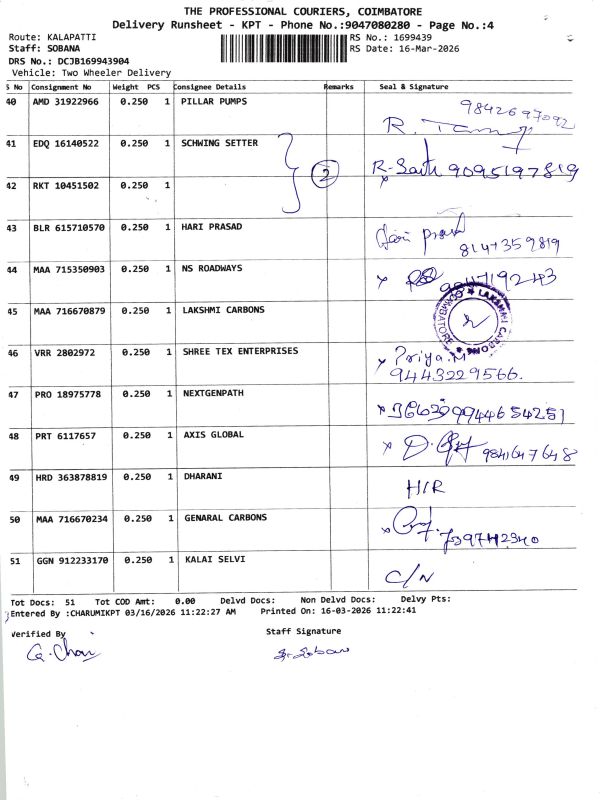 THE PROFESSIONAL COURIERS, COIMBATORE
Delivery Runsheet - KPT - Phone No.:9047080280 - Page No.:4
Route: KALAPATTI
RS No.: 1699439
Staff: SOBANA
RS Date: 16-Mar-2026
DRS No.: DCJB169943904
Vehicle: Two Wheeler Delivery
S No Consignment No Weight PCS Consignee Details Remarks Seal & Signature
40 AMD 31922966 0.250 1 PILLAR PUMPS 9842697092
41 EDQ 16140522 0.250 1 SCHWING SETTER 9095197819
2
42 RKT 10451502 0.250 1
43 BLR 615710570 0.250 1 HARI PRASAD Hari prasad
8147359819
44 MAA 715350903 0.250 1 NS ROADWAYS
45 MAA 716670879 0.250 1 LAKSHMI CARBONS LAKSHMI CARBONS COIMBATORE
46 VRR 2802972 0.250 1 SHREE TEX ENTERPRISES Priya.M
9443229566.
47 PRO 18975778 0.250 1 NEXTGENPATH 9944654251
48 PRT 6117657 0.250 1 AXIS GLOBAL 9841647648
49 HRD 363878819 0.250 1 DHARANI H/R
50 MAA 716670234 0.250 1 GENARAL CARBONS
51 GGN 912233170 0.250 1 KALAI SELVI C/N
Tot Docs: 51 Tot COD Amt: 0.00 Delvd Docs: Non Delvd Docs: Delvy Pts:
Entered By :CHARUMIKPT 03/16/2026 11:22:27 AM Printed On: 16-03-2026 11:22:41
Verified By
Staff Signature